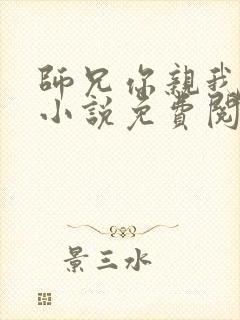 師兄你親我
小說免費閱
景三水